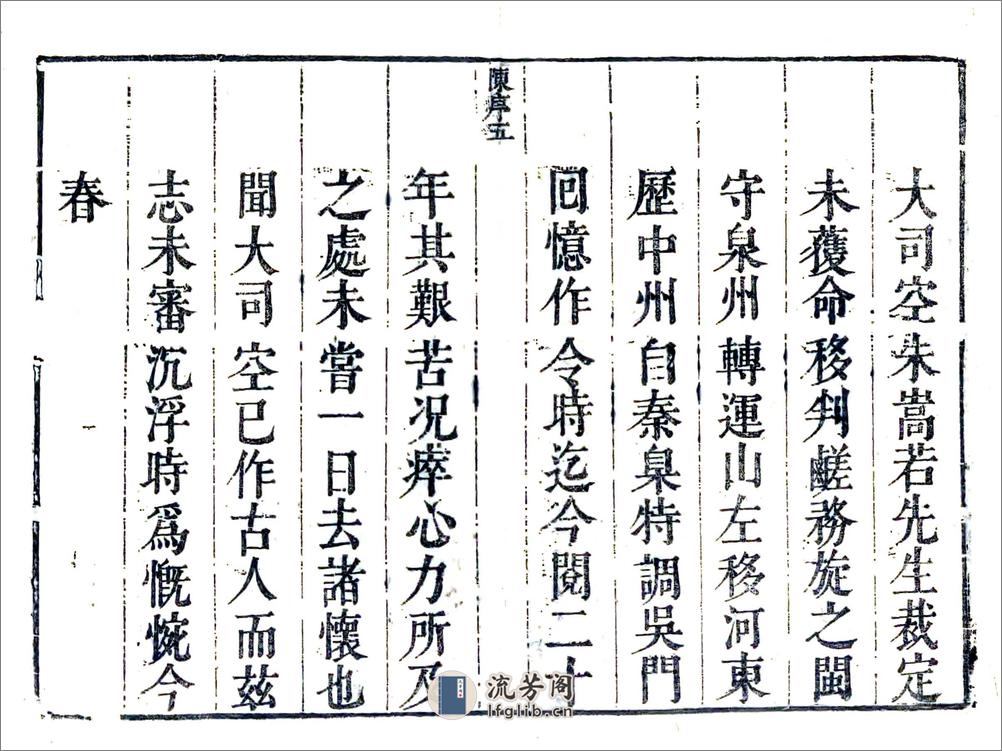 大司空朱嵩若先生裁定
未獲命移判鹺務旋之閩
守泉州轉運山左移河東
歷中州自秦臬特調吳門
回憶作令時迄今閱二十
陳序五
年其艱苦況瘁心力所及
之處未嘗一日去諸懷也
聞大司空已作古人而茲
志未審沉浮時爲慨惋今
春
流芳阁
lfglib.cn